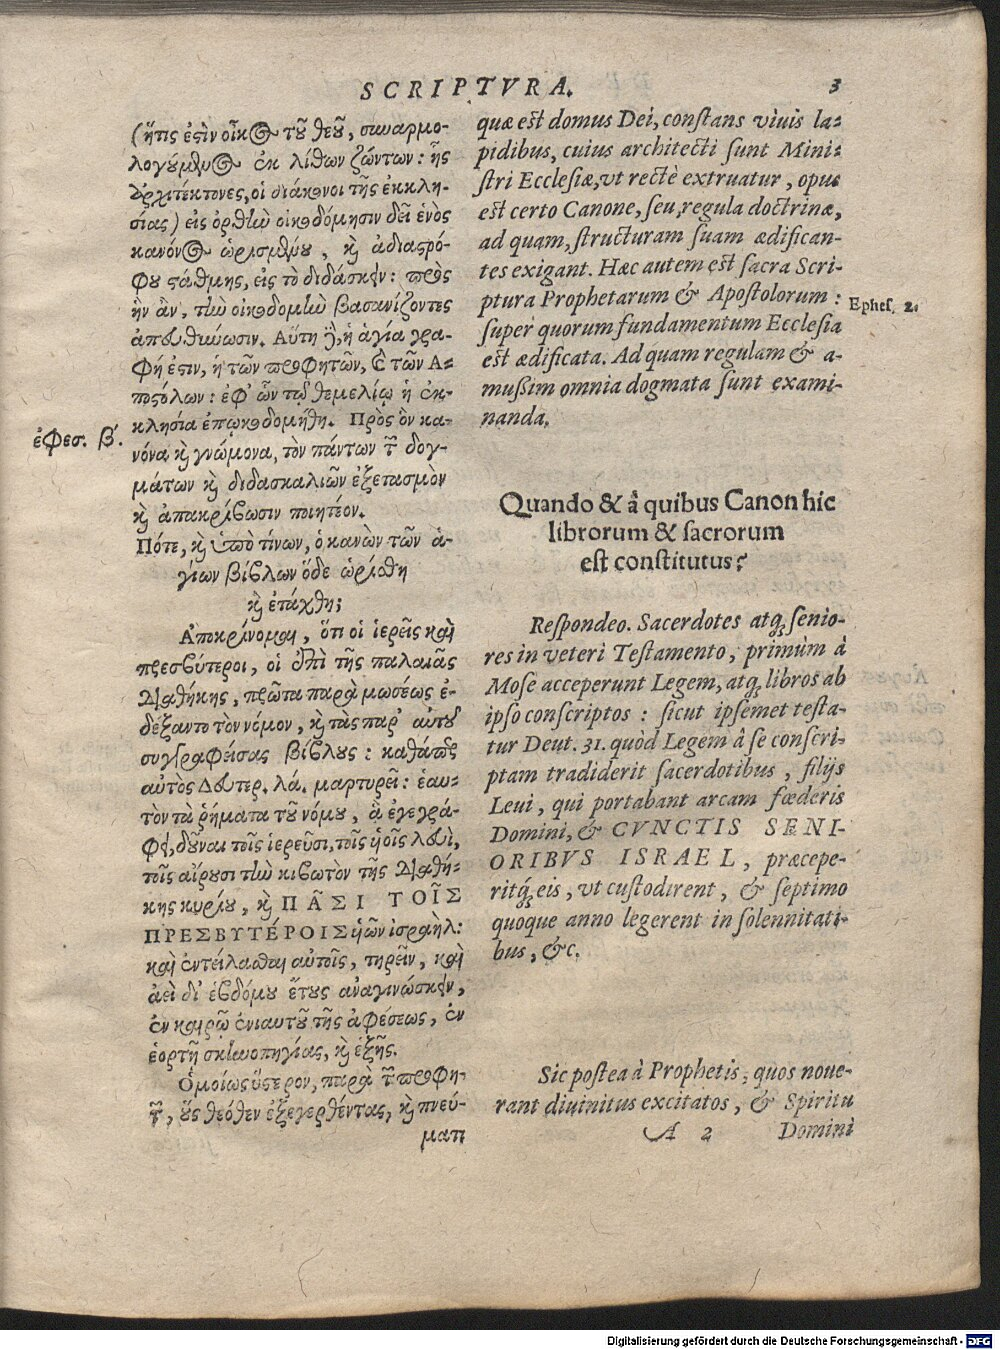 SCRIPTVRA. 3
(ἥτις ἐστὶν οἶκος τοῦ θεοῦ, συναρμο-
λογούμενος ἐκ λίθων ζώντων: ἧς
ἀρχιτέκτονες, οἱ διάκονοι τῆς ἐκκλη-
σίας) εἰς ὀρθὴν οἰκοδόμησιν δεῖ ἑνὸς
κανόνος ὡρισμένου, καὶ ἀδιαστρό-
φου στάθμης, εἰς τὸ διδάσκειν: πρὸς
ἣν ἂν, τὴν οἰκοδομὴν βασανίζοντες
ἀπευθύνωσιν. Αὕτη γὰρ, ἡ ἁγία γρα-
φή ἐστιν, ἡ τῶν προφητῶν, καὶ τῶν Ἀ-
ποστόλων: ἐφ' ὧν τῷ θεμελίῳ ἡ ἐκ-
κλησία ἐπῳκοδομήθη. Πρὸς ὃν κα-
νόνα καὶ γνώμονα, τὸν πάντων τῶν δογ-
μάτων καὶ διδασκαλιῶν ἐξετασμὸν
καὶ ἀπακρίβωσιν ποιητέον.
ἐφεσ. β'.
Πότε, καὶ ὑπὸ τίνων, ὁ κανὼν τῶν ἁ-
γίων βίβλων ὅδε ὡρίσθη
καὶ ἐτάχθη;
Ἀποκρίνομαι, ὅτι οἱ ἱερεῖς καὶ
πρεσβύτεροι, οἱ ἐπὶ τῆς παλαιᾶς
διαθήκης, πρῶτα παρὰ μωσέως ἐ-
δέξαντο τὸν νόμον, καὶ τὰς παρ' αὐτοῦ
συγγραφείσας βίβλους: καθάπερ
αὐτὸς Δευτερ. λά. μαρτυρεῖ: ἑαυ-
τὸν τὰ ῥήματα τοῦ νόμου, ἃ ἐγεγρά-
φει, δοῦναι τοῖς ἱερεῦσι, τοῖς υἱοῖς λευὶ,
τοῖς αἴρουσι τὴν κιβωτὸν τῆς διαθή-
κης κυρίου, καὶ ΠΑ͂ΣΙ ΤΟΙ͂Σ
ΠΡΕΣΒΥΤΈΡΟΙΣ υἱῶν ἰσραὴλ:
καὶ ἐντείλασθαι αὐτοῖς, τηρεῖν, καὶ
ἀεὶ δι' ἑβδόμου ἔτους ἀναγινώσκειν,
ἐν καιρῷ ἐνιαυτοῦ τῆς ἀφέσεως, ἐν
ἑορτῇ σκηνοπηγίας, καὶ ἑξῆς.
Ὁμοίως ὕστερον, παρὰ τῶν προφη-
τῶν, οὓς θεόθεν ἐξεγερθέντας, καὶ πνεύ-
ματι
quæ est domus Dei, constans viuis la-
pidibus, cuius architecti sunt Mini-
stri Ecclesiæ, vt rectè extruatur, opus
est certo Canone, seu, regula doctrinæ,
ad quam, structuram suam ædifican-
tes exigant. Hæc autem est sacra Scri-
ptura Prophetarum & Apostolorum:
super quorum fundamentum Ecclesia
est ædificata. Ad quam regulam & a-
mussim omnia dogmata sunt exami-
nanda.
Ephes. 2.
Quando & â quibus Canon hic
librorum & sacrorum
est constitutus?
Respondeo. Sacerdotes atq́; senio-
res in veteri Testamento, primùm à
Mose acceperunt Legem, atq́; libros ab
ipso conscriptos: sicut ipsemet testa-
tur Deut. 31. quòd Legem â se conscri-
ptam tradiderit sacerdotibus, filijs
Leui, qui portabant arcam fœderis
Domini, & CVNCTIS SENI-
ORIBVS ISRAEL, præcepe-
ritq́; eis, vt custodirent, & septimo
quoque anno legerent in solennitati-
bus, &c.
Sic postea à Prophetis, quos noue-
rant diuinitus excitatos, & Spiritu
A 2 Domini
Digitalisierung gefördert durch die Deutsche Forschungsgemeinschaft - DFG